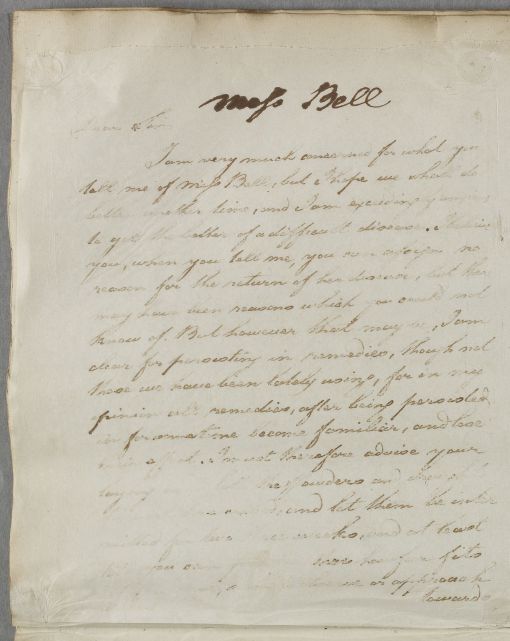 Miss Bell
Dear Sir
I am very much concerned for what you
tell me of Miss Bell, but I hope we shall do
better another time, and I am exceedingly anxious
to get the better of a difficult disease. I believe
you, when you tell me, you can assign no
reason for the return of her disease, but there
may have been reasons which you could not
know of. But however that may be, I am
clear for persisting in remedies, though not
those we have been lately using, for in my
opinion all remedies, after being persisted
in for some time become familiar, and lose
their effect. I must therefore advise your
laying the powders and
and let them be inter
mitted for two or three weeks, and at least
till you see fits
or approach
towards